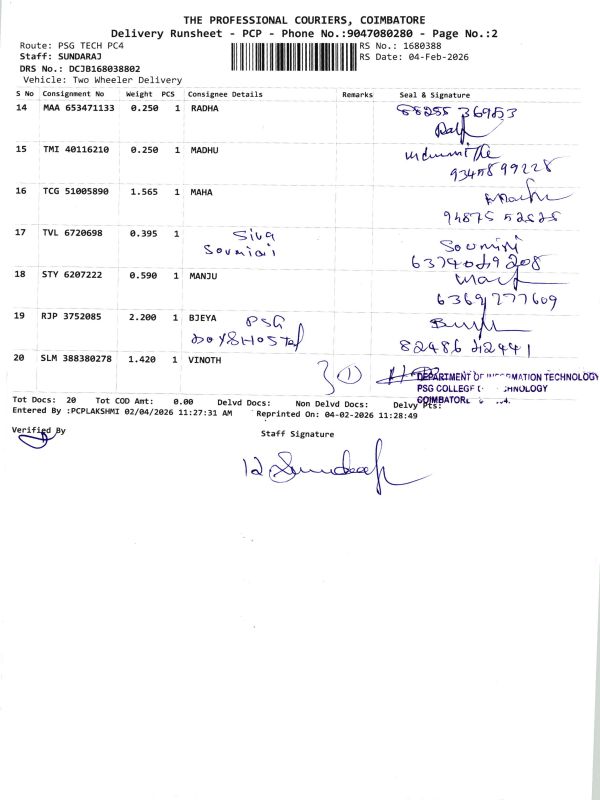 THE PROFESSIONAL COURIERS, COIMBATORE
Delivery Runsheet - PCP - Phone No.:9047080280 - Page No.:2
Route: PSG TECH PC4 RS No.: 1680388
Staff: SUNDARAJ RS Date: 04-Feb-2026
DRS No.: DCJB168038802
Vehicle: Two Wheeler Delivery
S No Consignment No Weight PCS Consignee Details Remarks Seal & Signature
14 MAA 653471133 0.250 1 RADHA 88255 36953
15 TMI 40116210 0.250 1 MADHU
9345899228
16 TCG 51005890 1.565 1 MAHA
94875 52525
17 TVL 6720698 0.395 1 Siva
6374049208
18 STY 6207222 0.590 1 MANJU
6369777609
19 RJP 3752085 2.200 1 BJEYA PSG
BOYSHostel 82486 42441
20 SLM 388380278 1.420 1 VINOTH 1
DEPARTMENT OF INFORMATION TECHNOLOGY
PSG COLLEGE TECHNOLOGY
COIMBATORE
Tot Docs: 20 Tot COD Amt: 0.00 Delvd Docs: Non Delvd Docs: Delvy Pts:
Entered By :PCPLAKSHMI 02/04/2026 11:27:31 AM Reprinted On: 04-02-2026 11:28:49
Verified By Staff Signature